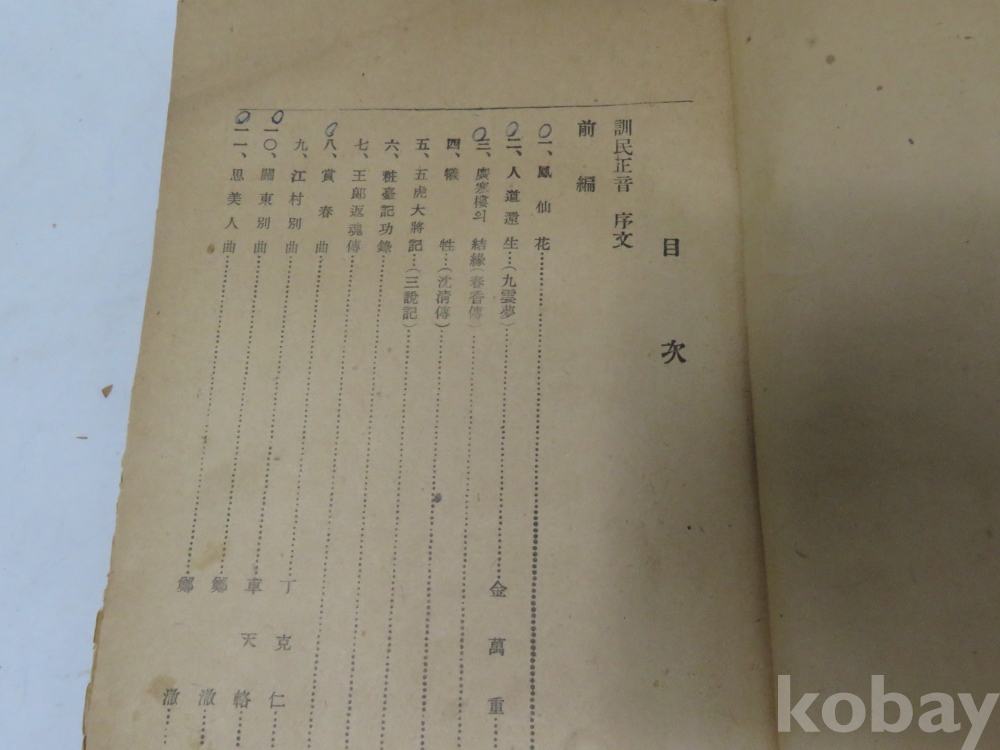 目次
訓民正音 序文
前編
一、鳳仙花
二、人道還生…(九雲夢)…金萬重
三、廣寒樓의 結緣(春香傳)
四、犧牲…(沈淸傳)
五、五虎大將記…(三說記)
六、粧臺記功錄
七、王郞返魂傳
八、賞春曲…丁克仁
九、江村別曲…車天輅
一〇、關東別曲…鄭澈
一一、思美人曲…鄭澈
kobay